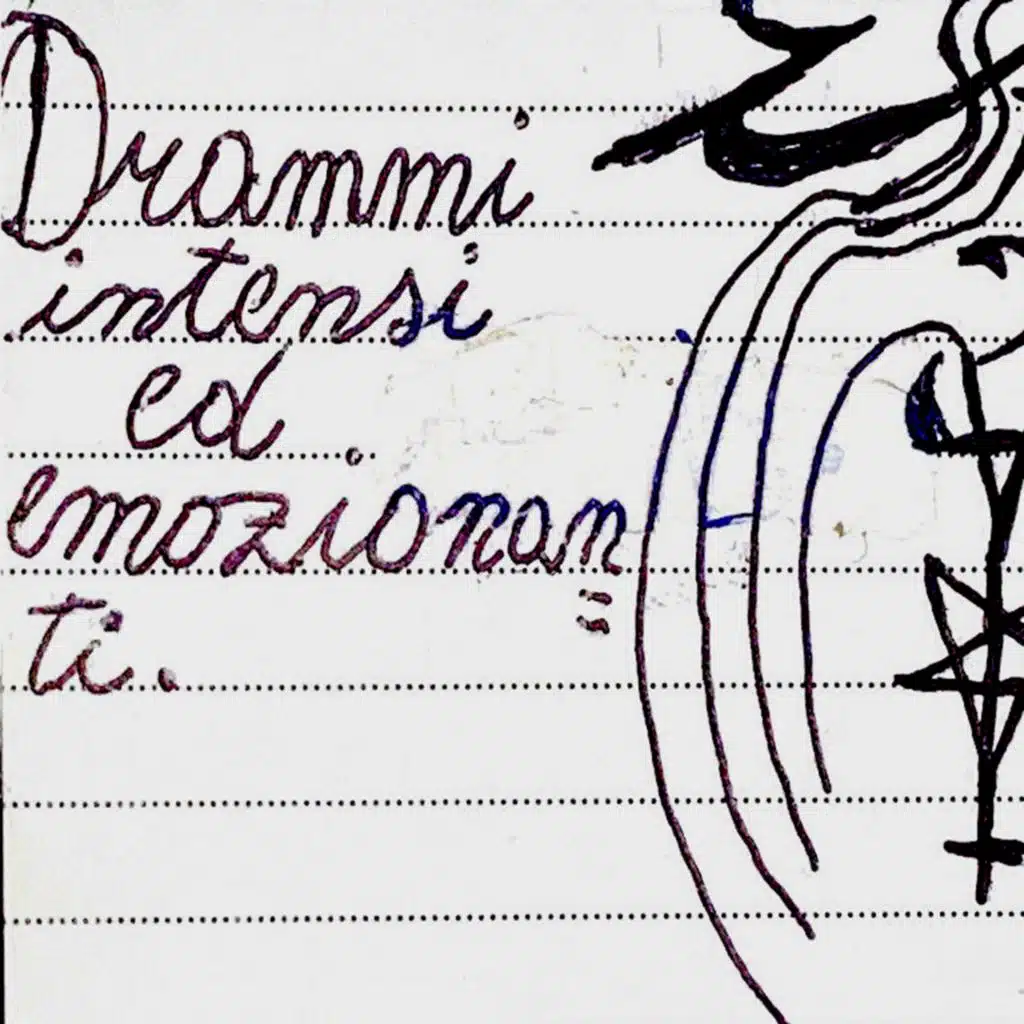 Drammi
intensi
ed
emozionan=
ti.